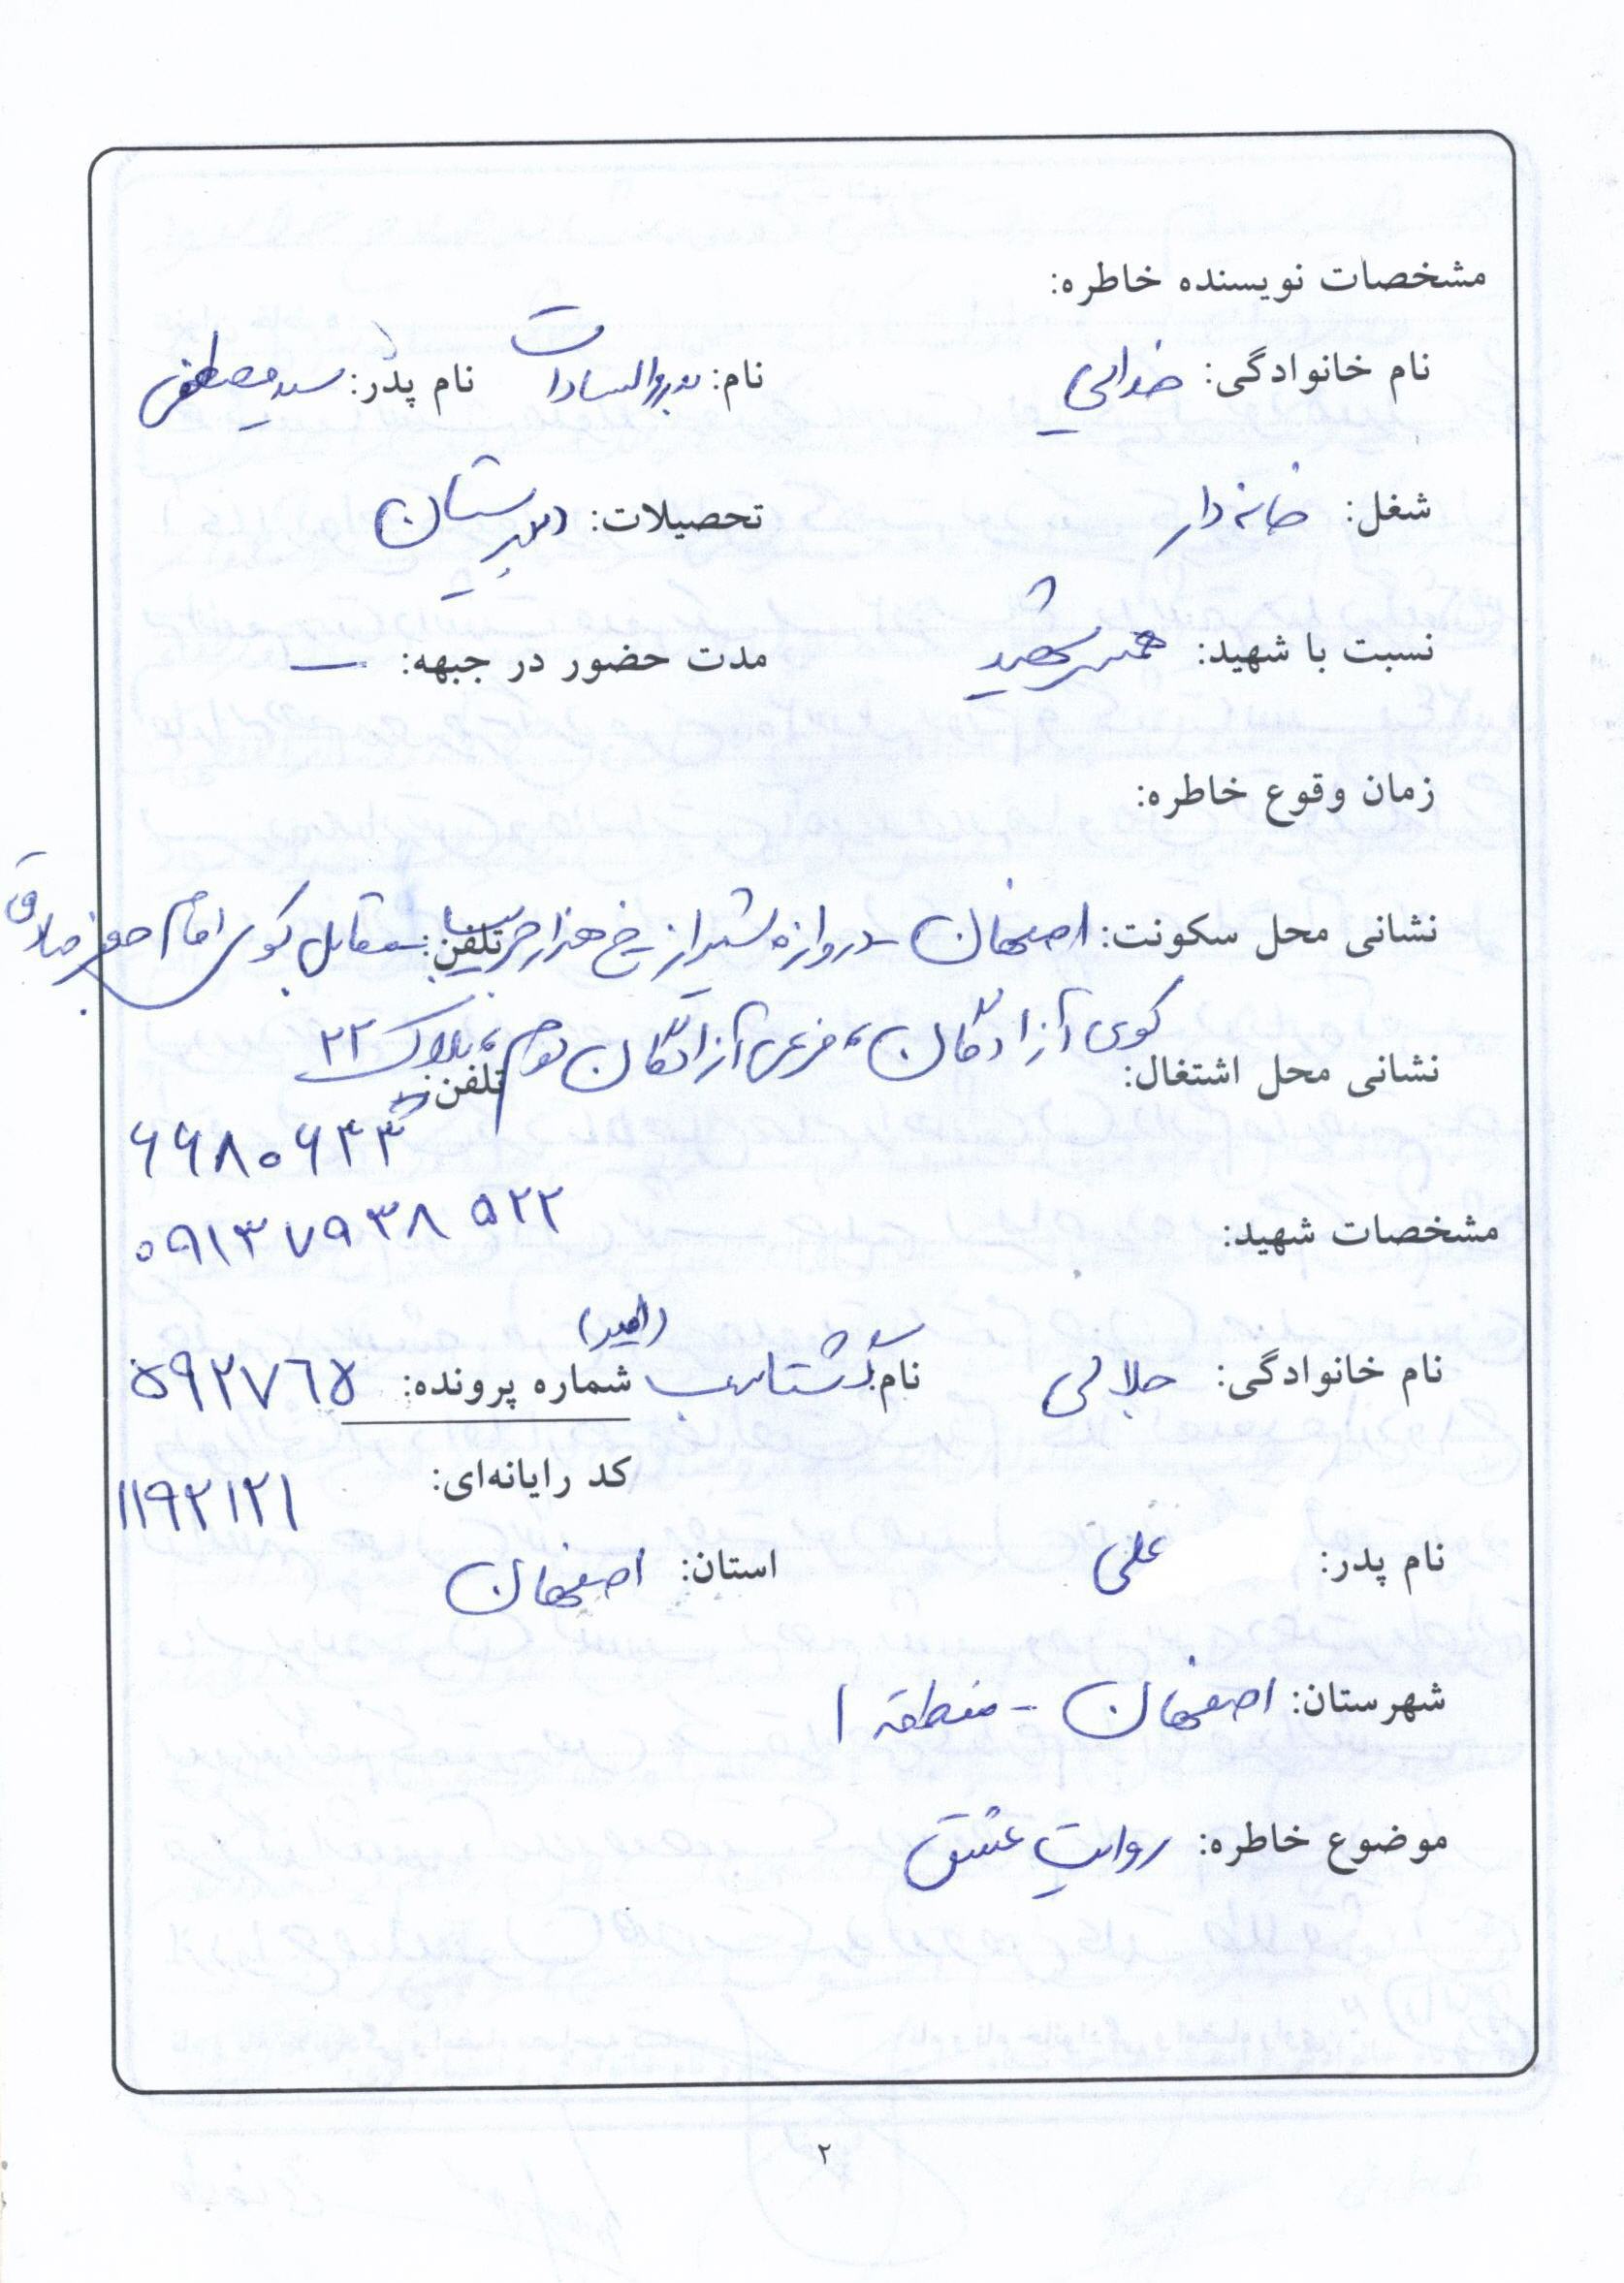 مشخصات نویسنده خاطره:
نام خانوادگی: خدایی نام: بدروالسادات نام پدر: سید مصطفی
شغل: خانه دار تحصیلات: دبیرستان
نسبت با شهید: همسر شهید مدت حضور در جبهه: —
زمان وقوع خاطره:
نشانی محل سکونت: اصفهان - دروازه شیراز - خ هزار جریب تلفن: - مقابل کوی امام جعفر صادق
کوی آزادگان، فرعی آزادگان دوم، پلاک ۲۲
نشانی محل اشتغال: تلفن:
۶۶۸۰۶۳۳
۰۹۱۳۷۹۳۸۵۲۲
مشخصات شهید:
(امیر)
نام خانوادگی: جلالی نام: گشتاسب شماره پرونده: ۵۹۲۷۶۵
کد رایانه‌ای: ۱۱۹۲۱۲۱
نام پدر: علی استان: اصفهان
شهرستان: اصفهان - منطقه ۱
موضوع خاطره: روایتِ عشق
۲